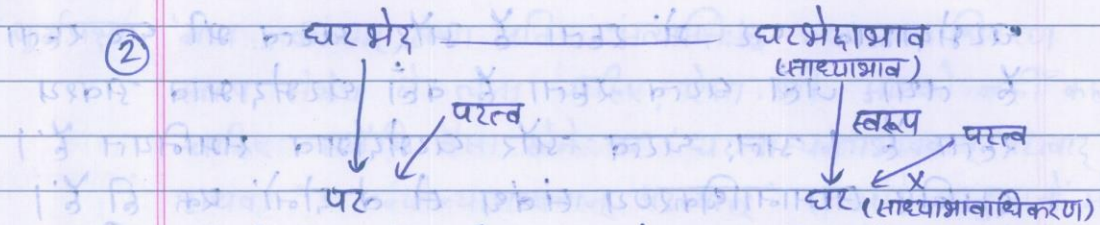 ② घटभेद घटभेदाभाव
(साध्याभाव)
पटत्व स्वरूप पटत्व
पट घट (साध्याभावाधिकरण)